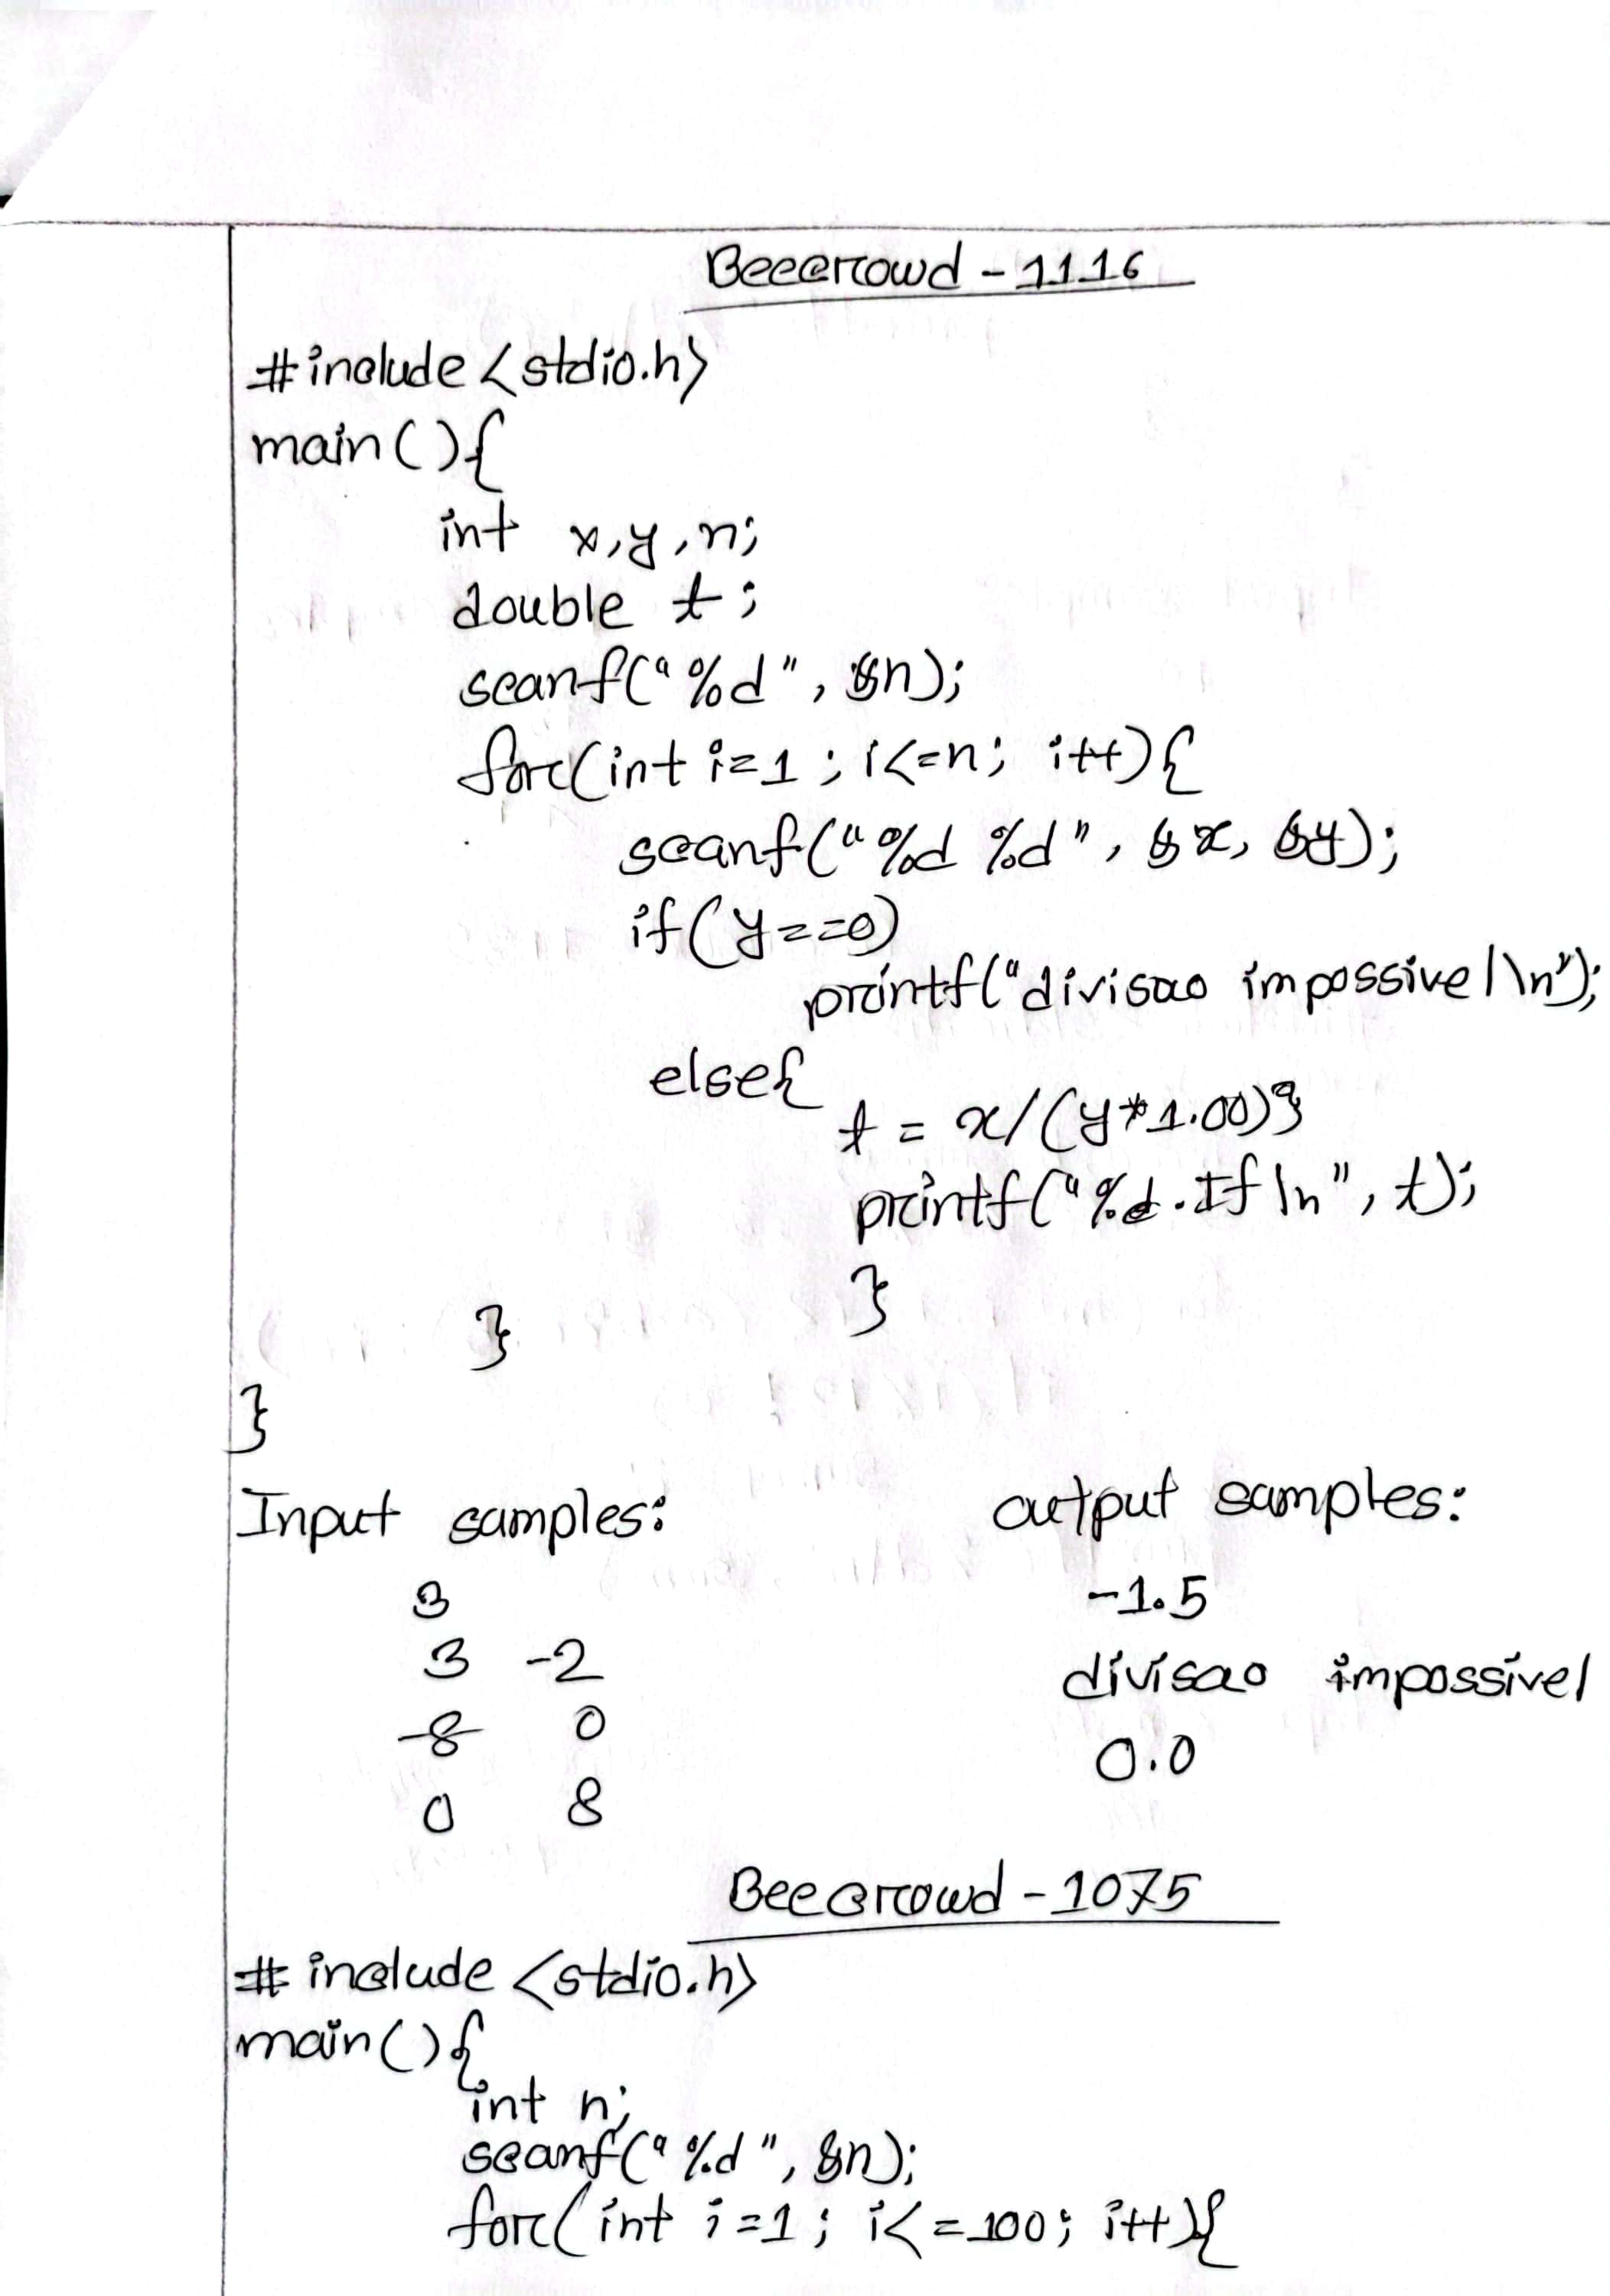 Beecrowd - 1116
#include <stdio.h>
main(){
int x,y,n;
double t;
scanf("%d", &n);
for(int i=1; i<=n; i++){
scanf("%d %d", &x, &y);
if(y==0)
printf("divisao impossivel\n");
else{
t = x/(y*1.00);
printf("%d.1f\n", t);
}
}
}
Input samples: output samples:
3 -1.5
3 -2 divisao impossivel
-8 0 0.0
0 8
Beecrowd - 1075
#include <stdio.h>
main(){
int n;
scanf("%d", &n);
for(int i=1; i<=100; i++){